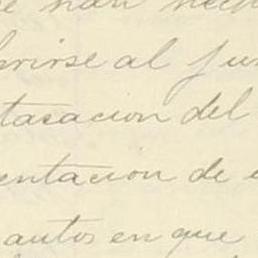 se han hech
brirse al ju
tasacion del
entacion de
autos en que